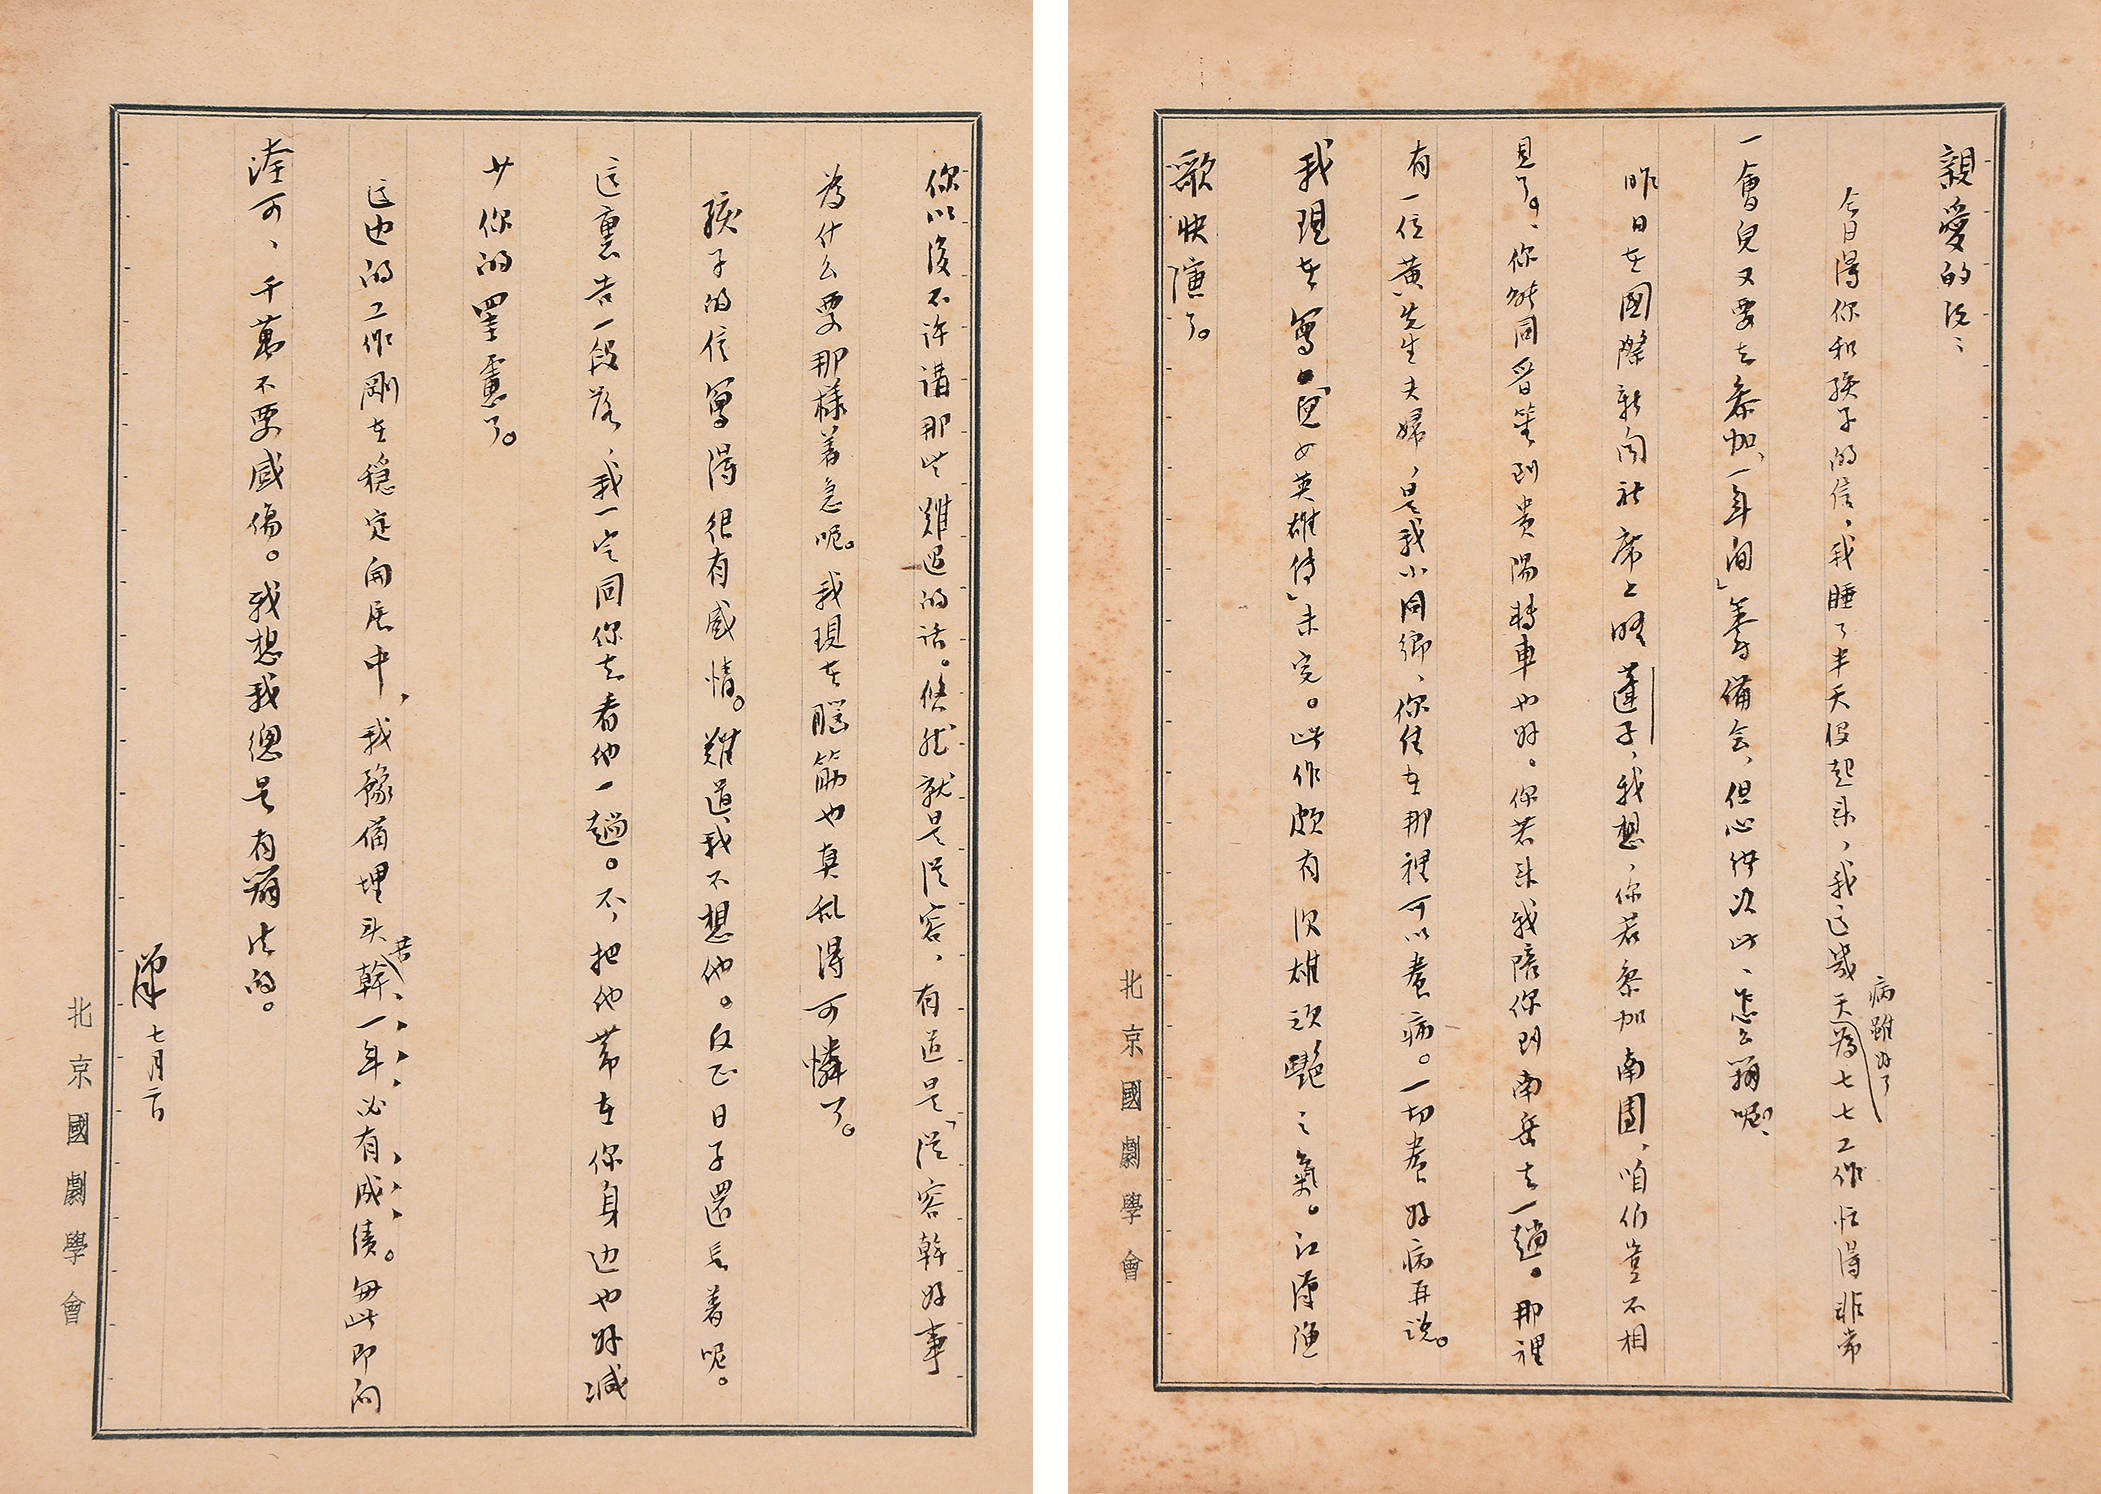 親愛的沅：
今日得你和孩子的信，我睡了半天沒起來，我這幾天為七七工作忙得非常
病雖好了
一會兒又要去參加「一年間」籌備会，但心緒如此、怎么辦呢？
昨日在國際新聞社席上晤蓮子，我想，你若參加南團，咱们豈不相
見了。、你能同晉笙到貴陽轉車也好。你若來我陪你到南岳去一趟。那裡
有一位黃先生夫婦，是我小同鄉，你住在那裡可以養病。一切養好病再說。
我現在寫「兒女英雄傳」未完。此作頗有沉雄頑艷之氣。江漢漁
歌快演了。
北京國劇學會
你以後不許講那些難過的話。悠然就是從容，有道是「從容幹好事
為什么要那樣着急呢。我現在腦筋也真亂得可憐了。
孩子的信寫得很有感情。難道我不想他。反正日子還長着呢。
這裏告一段落，我一定同你去看他一趟。不，把他帶在你身边也好減
少你的罣慮了。
這边的工作剛在穩定開展中，我豫備埋头苦幹、一年，必有成績。無此即向
漥可、千萬不要感傷。我想我總是有辦法的。
漢 七月二日
北京國劇學會